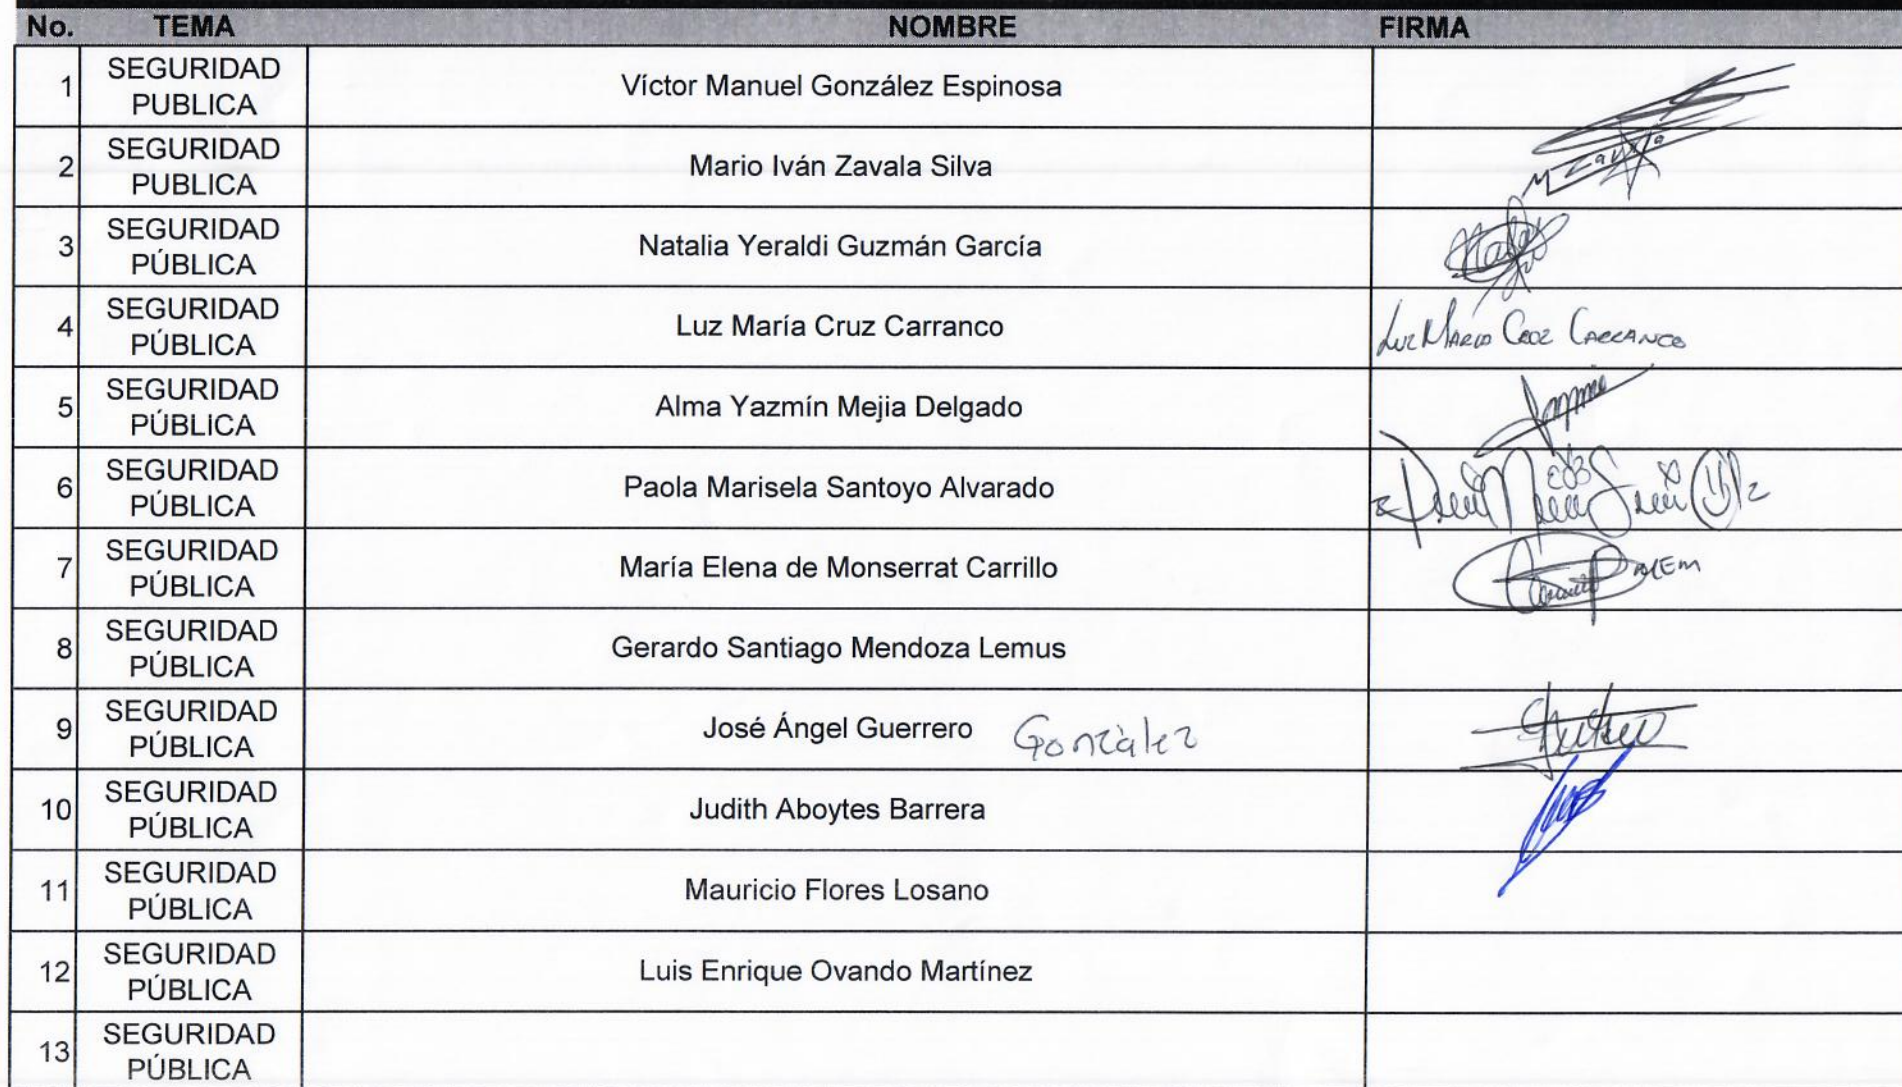 No. TEMA NOMBRE FIRMA
1 SEGURIDAD PUBLICA Víctor Manuel González Espinosa
2 SEGURIDAD PUBLICA Mario Iván Zavala Silva M Zavala
3 SEGURIDAD PÚBLICA Natalia Yeraldi Guzmán García
4 SEGURIDAD PÚBLICA Luz María Cruz Carranco Luz María Cruz Carranco
5 SEGURIDAD PÚBLICA Alma Yazmín Mejia Delgado
6 SEGURIDAD PÚBLICA Paola Marisela Santoyo Alvarado
7 SEGURIDAD PÚBLICA María Elena de Monserrat Carrillo
8 SEGURIDAD PÚBLICA Gerardo Santiago Mendoza Lemus
9 SEGURIDAD PÚBLICA José Ángel Guerrero González
10 SEGURIDAD PÚBLICA Judith Aboytes Barrera
11 SEGURIDAD PÚBLICA Mauricio Flores Losano
12 SEGURIDAD PÚBLICA Luis Enrique Ovando Martínez
13 SEGURIDAD PÚBLICA